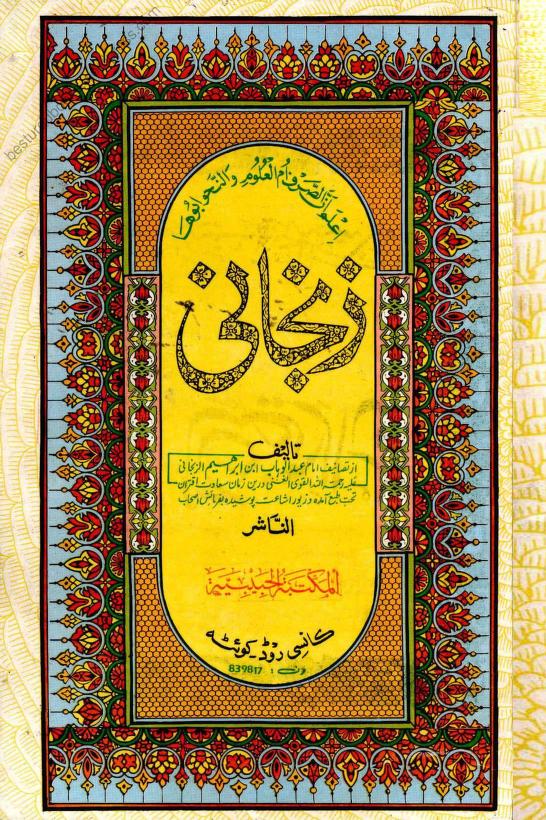 اعلم ان الصرف ام العلوم والنحو ابوها
زنجانی
تالیف
از تصانیف امام عبدالوہاب ابن ابرہیم الزنجانی
علیہ رحمۃ اللہ القوی الغنی درین زمان سعادت اقتران
تحت طبع آمدہ و زیور اشاعت پوشیدہ بفرمائش اصحاب
الناشر
المکتبۃ الحبیبیۃ
کانسی روڈ۔کوئٹہ
فون : 839817